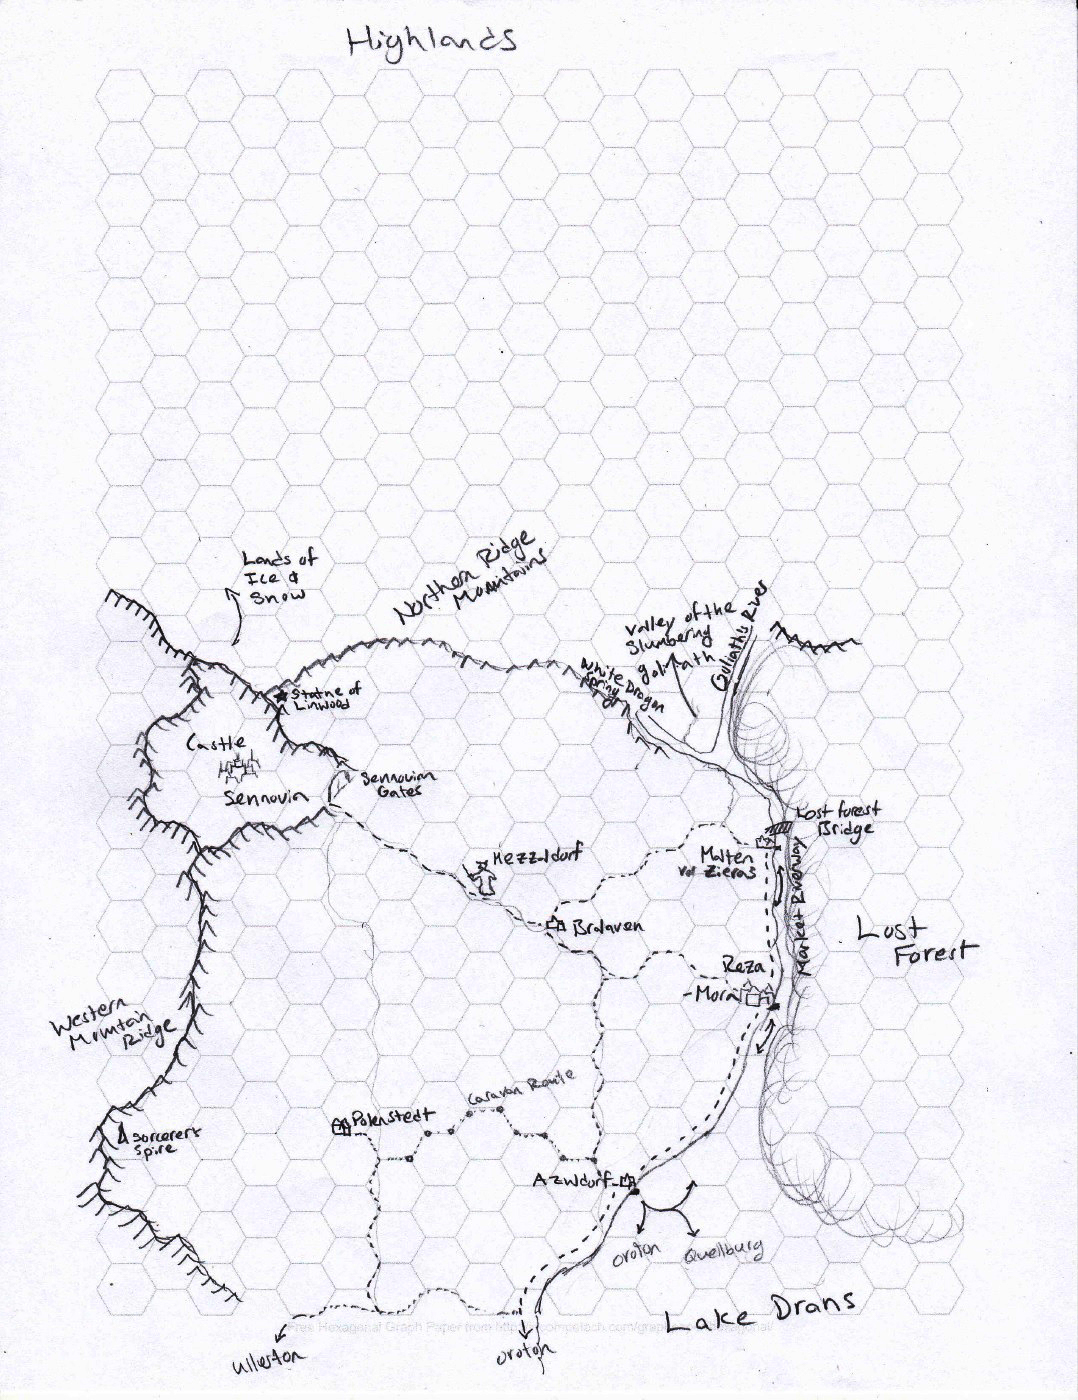 Highlands
Lands of
Ice &
Snow
Northern Ridge
Mountains
Valley of the
Slumbering
goliath
Goliath's River
White Dragon
Spring
Statue of
Linwood
Castle
Sennovin
Sennovin
Gates
Lost Forest
Bridge
Mezzaldorf
Malten
von Zieras
Market Riverway
Bralaven
Lost
Forest
Reza
-Mora
Western
Mountain
Ridge
Caravan Route
Polenstedt
Sorcerers
Spire
Azwdorf
Oroton
Quellburg
Lake Drans
Free Hexagonal Graph Paper from http://incompetech.com/graphpaper/hexagonal/
Ullerton
Oroton